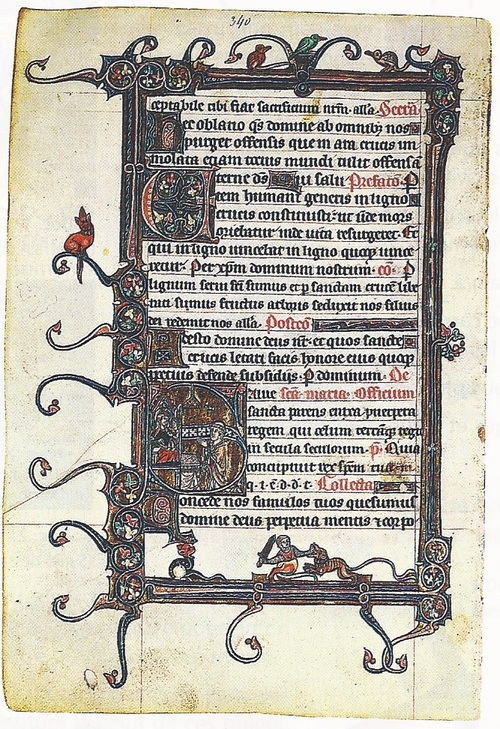 340
ceptabile tibi fiat sacrificium nrm. alla. Secreta
ec oblatio qs domine ab omnibꝫ nos
purget offensis que in ara crucis im
molata eciam tocius mundi tulit offensa
terne ds qui salu Prefacio. P
tem humani generis in ligno
crucis constituisti: ut unde mors
oriebatur inde vita resurgeret. Et
qui in ligno vincebat in ligno quoqꝫ vince
retur. Per xpm dominum nostrum. cō. P
lignum serui
mur sumus fructus arboris seduxit nos filius
dei redemit nos alla. Postcō
desto domine deus nr. et quos sancte
crucis letari facis honore eius quoqꝫ
petuis defende subsidijs. P dominum. De
salue sca maria. Officium
sancta parens enixa puerpera
regem qui celum terramqꝫ regit
in secula seculorum. p. Quia
concipiuit rex
q. i. c. d. t. Collecta
oncede nos famulos tuos quesumus
domine deus perpetua mentis et corpo